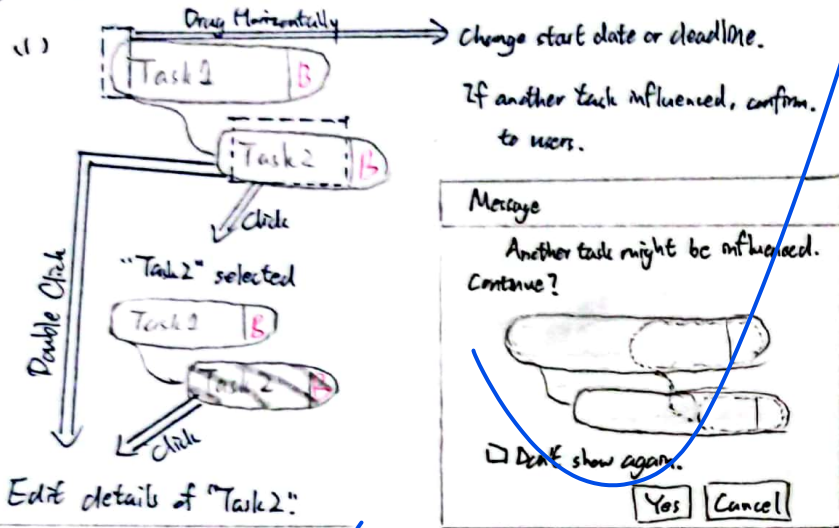 (1)
Drag Horizontally
Change start date or deadline.
Task 1 B
If another task influenced, confirm.
to users.
Task 2 B
Click
Double Click
"Task 2" selected
Task 1 B
Task 2 B
Click
Edit details of "Task 2".
Message
Another task might be influenced.
Continue?
Don't show again.
Yes Cancel